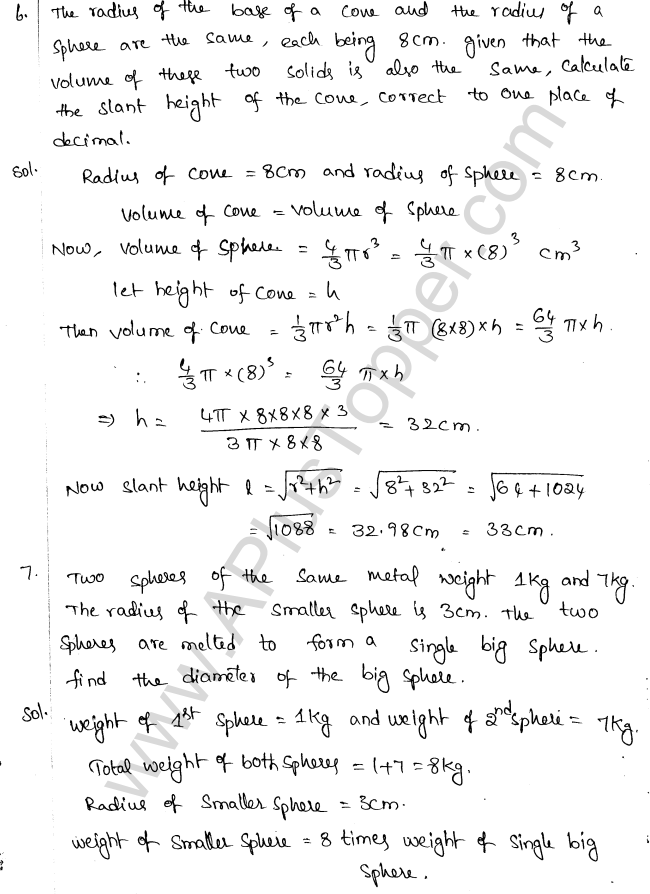 6. The radius of the base of a cone and the radius of a
sphere are the same, each being 8cm. given that the
volume of these two solids is also the same, calculate
the slant height of the cone, correct to one place of
decimal.
Sol. Radius of cone = 8cm and radius of sphere = 8cm.
volume of cone = volume of sphere
Now, volume of sphere = 4/3 πr³ = 4/3 π × (8)³ cm³
let height of cone = h
Then volume of cone = 1/3 πr²h = 1/3 π (8×8) × h = 64/3 π×h.
∴ 4/3 π × (8)³ = 64/3 π×h
⇒ h = (4π × 8×8×8 × 3)/(3π × 8×8) = 32cm.
Now slant height l = √(r²+h²) = √(8²+32²) = √(64+1024)
= √1088 = 32.98cm = 33cm.
7. Two spheres of the same metal weight 1kg and 7kg.
The radius of the smaller sphere is 3cm. The two
spheres are melted to form a single big sphere.
find the diameter of the big sphere.
Sol. weight of 1st sphere = 1kg and weight of 2nd sphere = 7kg.
Total weight of both spheres = 1+7 = 8kg.
Radius of smaller sphere = 3cm.
weight of smaller sphere = 8 times weight of single big
sphere.
www.APlusTopper.com